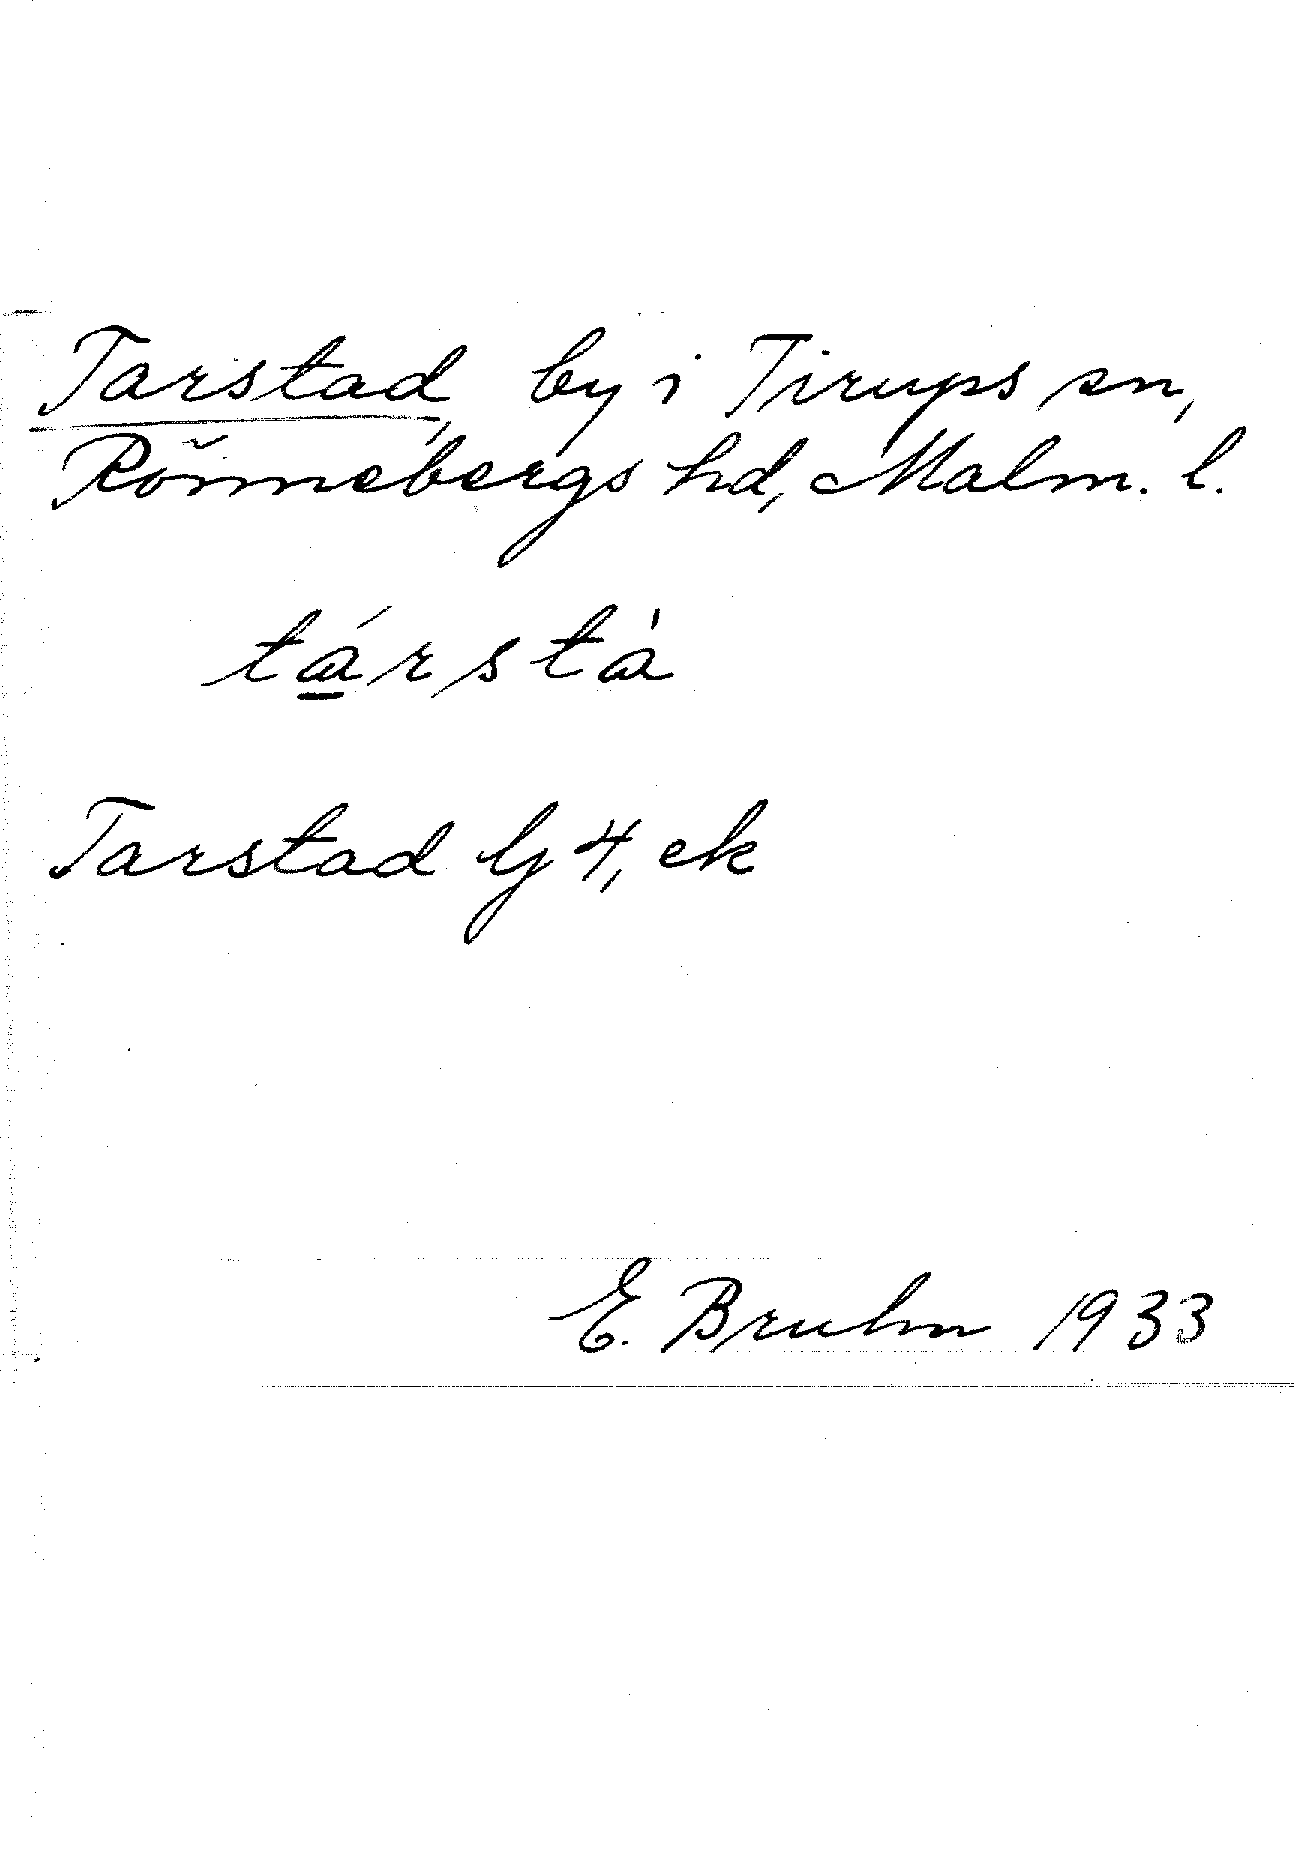 Tarstad, by i Tirups sn,
Rönnebergs hd, Malm. l.
társtà
Tarstad lj 4, ek
E. Bruhn 1933